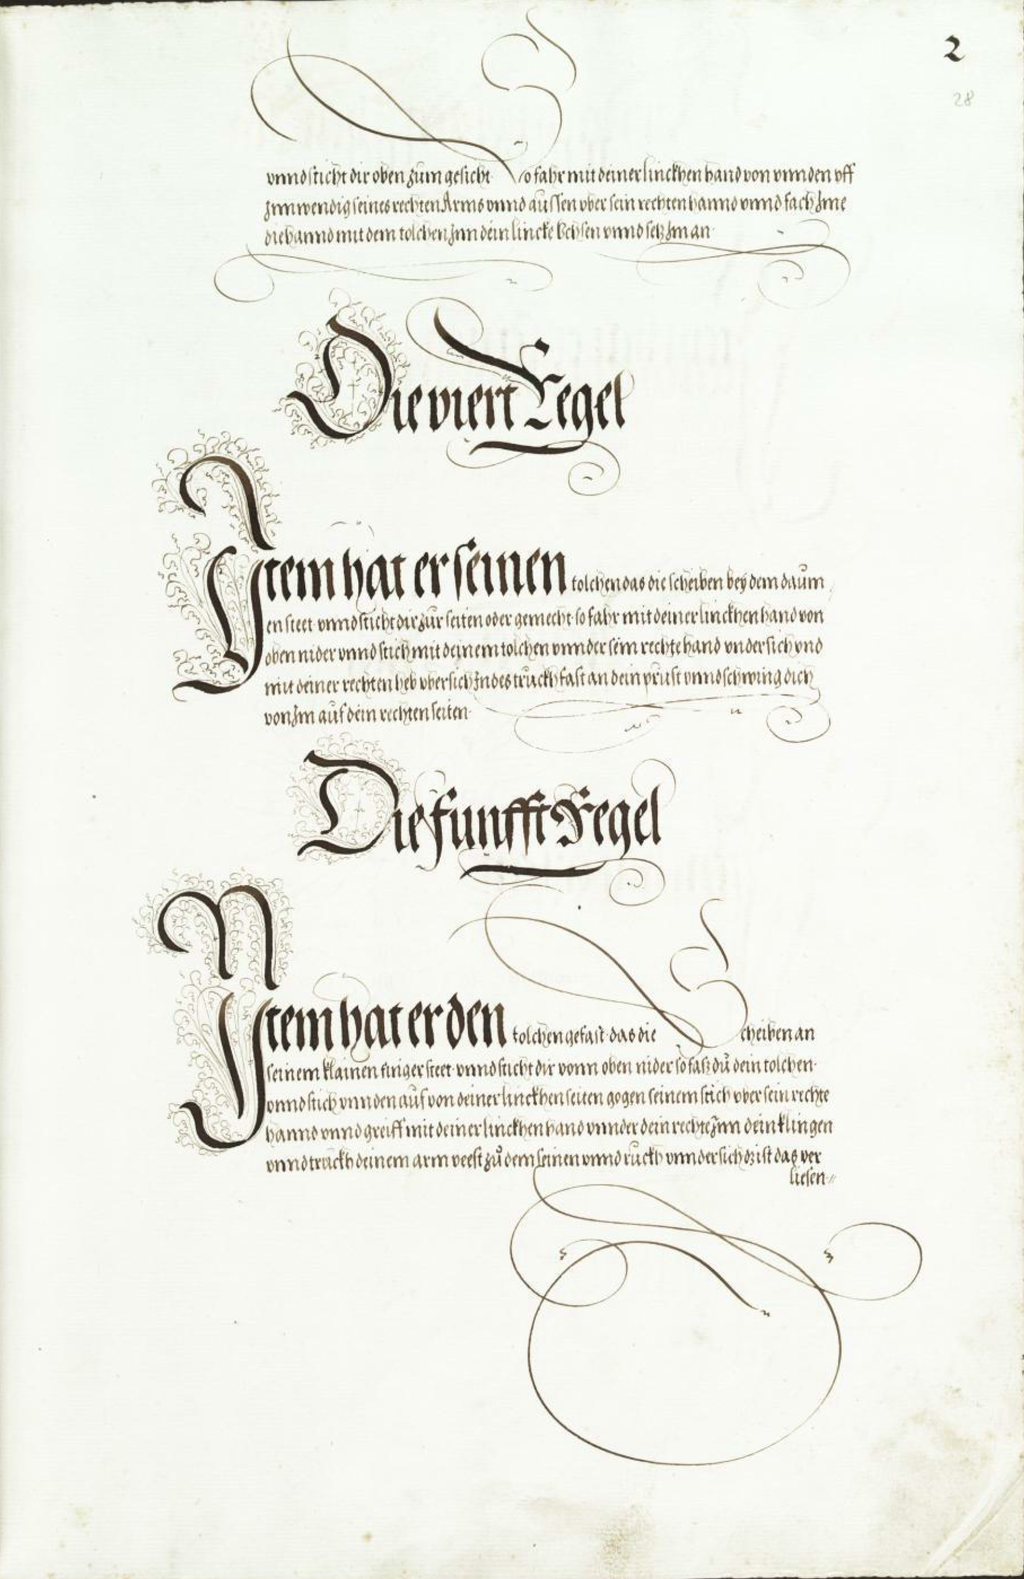 2
28
vnnd sticht dir oben zum gesicht So fahr mit deiner linckhen hand von vnnden vff
Inwendig seines rechten Arms vnnd aussen vber sein rechten hannd vnnd fach Ime
die hannd mit dem tolchen Inn dein lincke Vehsen vnnd setz Im an
Die viert Regel
Item hat er seinen tolchen das die scheiben bey dem daum
en steet vnnd sticht dir zur seiten oder gemecht so fahr mit deiner linckhen hand von
oben nider vnnd stich mit deinem tolchen vnnder sein rechte hand vndersich vnd
mit deiner rechten heb vbersich Indes truckh fast an dein prust vnnd schwing dich
von Im auf dein rechten seiten
Die funfft Regel
Item hat er den tolchen gefast das die Scheiben an
seinem klainen finger steet vnnd sticht dir vonn oben nider so fass dů dein tolchen
vnnd stich vnnden auf von deiner linckhen seiten gogen seinem stich vber sein rechte
hannd vnnd greiff mit deiner linckhen hand vnnder dein rechte Inn dein klingen
vnnd truckh deinem arm veest zů dem seinen vnnd ruckh vnndersich dz ist das ver
liesen